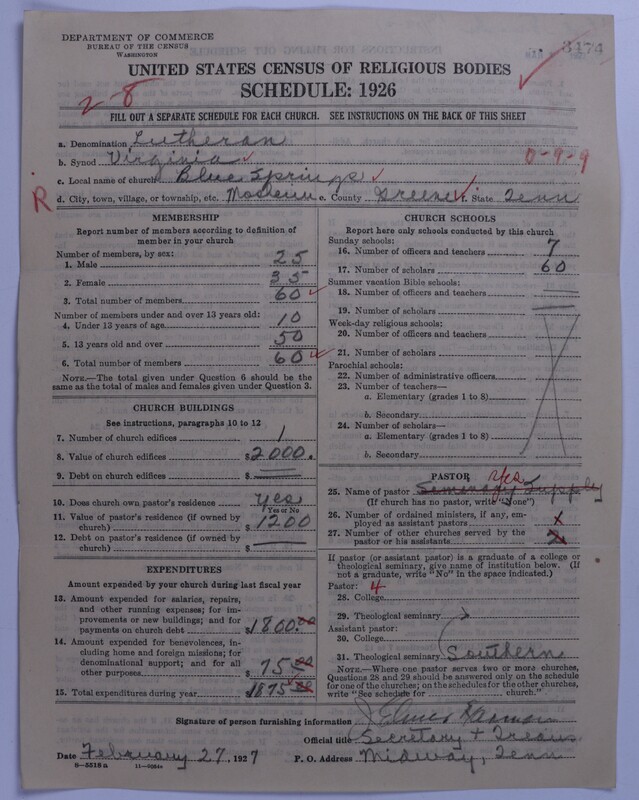 DEPARTMENT OF COMMERCE
BUREAU OF THE CENSUS
WASHINGTON
3474
UNITED STATES CENSUS OF RELIGIOUS BODIES
SCHEDULE: 1926
2-8
FILL OUT A SEPARATE SCHEDULE FOR EACH CHURCH. SEE INSTRUCTIONS ON THE BACK OF THIS SHEET
a. Denomination Lutheran
b. Synod Virginia
0-9-9
c. Local name of church Blue Springs
R
d. City, town, village, or township, etc. e. County Greene f. State Tenn
MEMBERSHIP
Report number of members according to definition of member in your church
Number of members, by sex:
1. Male 25
2. Female 35
3. Total number of members 60
Number of members under and over 13 years old:
4. Under 13 years of age 10
5. 13 years old and over 50
6. Total number of members 60
NOTE.—The total given under Question 6 should be the same as the total of males and females given under Question 3.
CHURCH BUILDINGS
See instructions, paragraphs 10 to 12
7. Number of church edifices 1
8. Value of church edifices $2000.
9. Debt on church edifices $
10. Does church own pastor's residence yes
Yes or No
11. Value of pastor's residence (if owned by church) $1200
12. Debt on pastor's residence (if owned by church) $
EXPENDITURES
Amount expended by your church during last fiscal year
13. Amount expended for salaries, repairs, and other running expenses; for improvements or new buildings; and for payments on church debt $1800.00
14. Amount expended for benevolences, including home and foreign missions; for denominational support; and for all other purposes $75.00
15. Total expenditures during year 1875.00
CHURCH SCHOOLS
Report here only schools conducted by this church
Sunday schools:
16. Number of officers and teachers 7
17. Number of scholars 60
Summer vacation Bible schools:
18. Number of officers and teachers
19. Number of scholars
Week-day religious schools:
20. Number of officers and teachers
21. Number of scholars
Parochial schools:
22. Number of administrative officers
23. Number of teachers—
a. Elementary (grades 1 to 8)
b. Secondary
24. Number of scholars—
a. Elementary (grades 1 to 8)
b. Secondary
PASTOR
25. Name of pastor Supply
(If church has no pastor, write "None")
26. Number of ordained ministers, if any, employed as assistant pastors x
27. Number of other churches served by the pastor or his assistants
If pastor (or assistant pastor) is a graduate of a college or theological seminary, give name of institution below. (If not a graduate, write "No" in the space indicated.)
Pastor: 4
28. College
29. Theological seminary
Assistant pastor:
30. College
31. Theological seminary Southern
NOTE.—Where one pastor serves two or more churches, Questions 28 and 29 should be answered only on the schedule for one of the churches; on the schedules for the other churches, write "See schedule for church."
Signature of person furnishing information
Official title Secretary + Treas.
Date February 27, 1927 P. O. Address Midway, Tenn
8-5518a